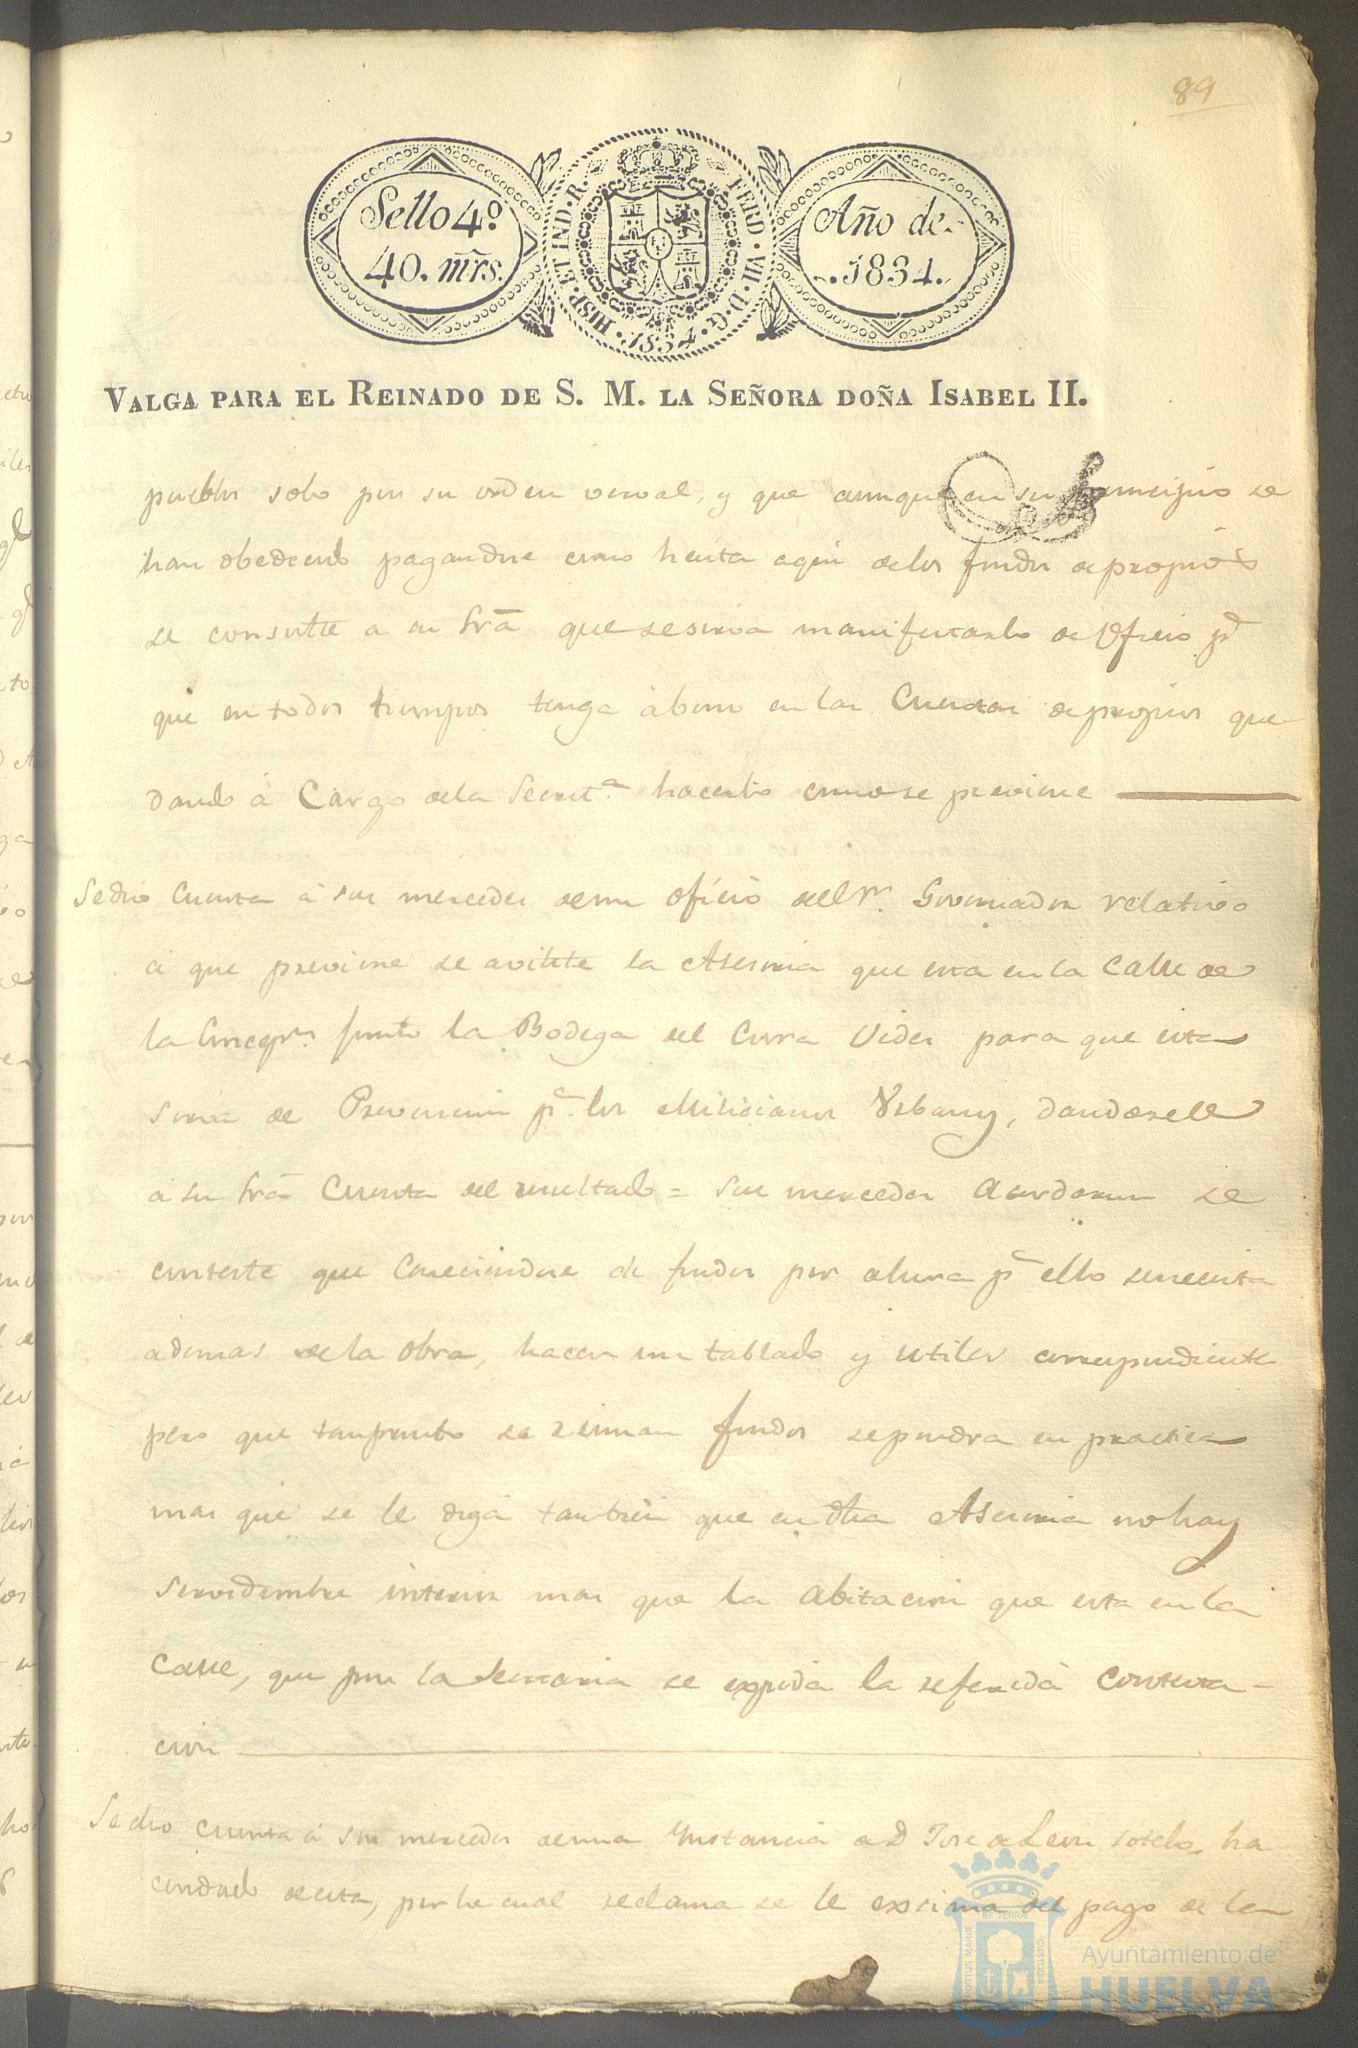 89
Sello 4º
40. mrs.
HISP. ET IND. R.
FERD. VII. D. G.
.1834.
Año de
.1834.
VALGA PARA EL REINADO DE S. M. LA SEÑORA DOÑA ISABEL II.
pueblos solo por su orden verval, y que aunque en su principio se
han obedecido pagandose como hasta aqui delos fondos de propios
se consulte a su Sria que se sirva manifestarlo de Oficio pª
que en todos tiempos tenga abono en las Cuentas de propios que
dando á Cargo dela Secretª hacerlo como se previene
Se dio Cuenta á sus mercedes de un oficio del Sr. Governador relativo
a que previene se avilite la que esta en la Calle de
la Concepn junto la Bodega del Cura Vides para que esta
sirva de Prevencion pª los Milicianos Urbanos, dandosele
a su Sria Cuenta del resultado = sus mercedes acordaron se
conteste que Careciendose de fondos por ahora pª ello se necesita
ademas de la obra, hacer un tablado y utiles correspondientes
pero que tan pronto se reunan fondos se pondra en practica
mas que se le diga tambien que en dha no hay
servidumbre interior mas que la abitacion que esta en la
Calle, que por la Secretaria se expida la referida Contesta-
cion
Se dio Cuenta á sus mercedes de una Instancia de D Jose de Leon Sotelo, ha
cendado de esta, por la cual reclama se le exsima del pago de la
PORTUS MARIS ET TERRÆ CUSTODIA
Ayuntamiento de
HUELVA